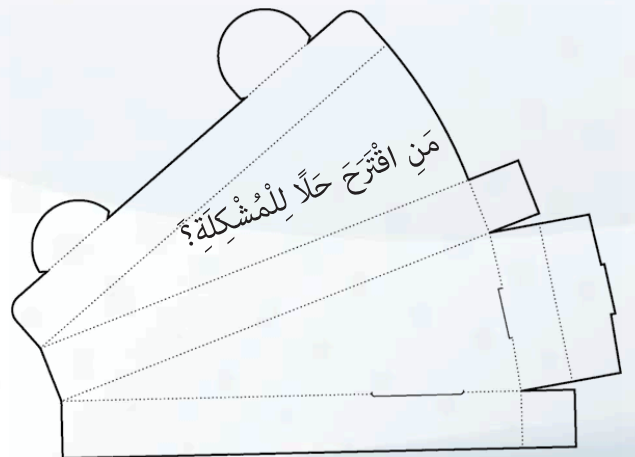 مَنِ اقْتَرَحَ حَلًا لِلْمُشْكِلَةِ؟